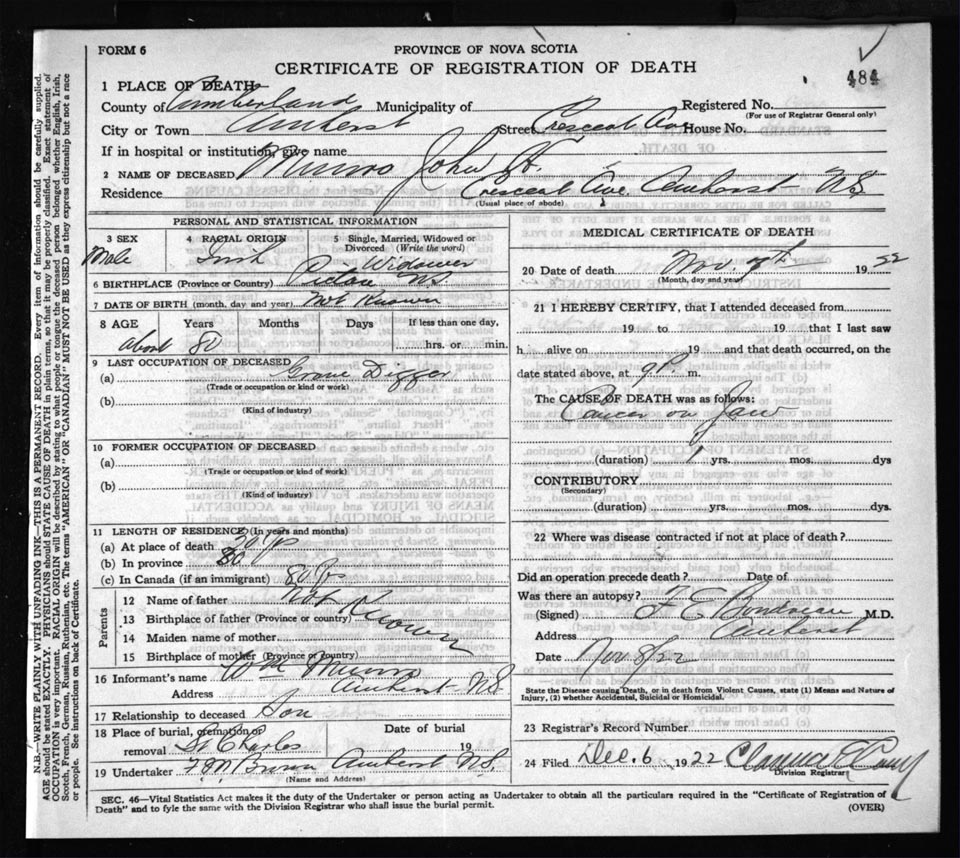 FORM 6
PROVINCE OF NOVA SCOTIA
CERTIFICATE OF REGISTRATION OF DEATH
484
1 PLACE OF DEATH
County of Cumberland Municipality of Registered No.
(For use of Registrar General only)
City or Town Amherst Street Crescent Ave House No.
If in hospital or institution, give name
2 NAME OF DECEASED Munro John H.
Residence Crescent Ave. Amherst N.S.
(Usual place of abode)
PERSONAL AND STATISTICAL INFORMATION
3 SEX 4 RACIAL ORIGIN 5 Single, Married, Widowed or Divorced (Write the word)
Male Irish Widower
6 BIRTHPLACE (Province or Country) Pictou N.S.
7 DATE OF BIRTH (month, day and year) Not Known
8 AGE Years Months Days If less than one day,
about 80 hrs. or min.
9 LAST OCCUPATION OF DECEASED
(a) Grave Digger
(Trade or occupation or kind of work)
(b)
(Kind of industry)
10 FORMER OCCUPATION OF DECEASED
(a)
(Trade or occupation or kind of work)
(b)
(Kind of industry)
11 LENGTH OF RESIDENCE (In years and months)
(a) At place of death 30
(b) In province 80
(c) In Canada (if an immigrant) 80 yrs
Parents
12 Name of father Not Known
13 Birthplace of father (Province or country)
14 Maiden name of mother
15 Birthplace of mother (Province or country)
16 Informant's name Wm Munro
Address Amherst N.S.
17 Relationship to deceased Son
18 Place of burial, cremation or removal Date of burial
St Charles 19
19 Undertaker F M Brown Amherst N.S.
(Name and Address)
MEDICAL CERTIFICATE OF DEATH
20 Date of death Nov. 7th 1922
(Month, day and year)
21 I HEREBY CERTIFY, that I attended deceased from
19 to 19 that I last saw
h alive on 19 and that death occurred, on the
date stated above, at 9 P. m.
The CAUSE OF DEATH was as follows:
Cancer on Jaw
(duration) 1 yrs. mos. dys
CONTRIBUTORY
(Secondary)
(duration) yrs. mos. dys
22 Where was disease contracted if not at place of death?
Did an operation precede death? Date of
Was there an autopsy?
(Signed) F. E. M.D.
Address Amherst
Date Nov 8/22
State the Disease causing Death, or in death from Violent Causes, state (1) Means and Nature of Injury, (2) whether Accidental, Suicidal or Homicidal.
23 Registrar's Record Number
24 Filed Dec. 6 1922
Division Registrar
SEC. 46—Vital Statistics Act makes it the duty of the Undertaker or person acting as Undertaker to obtain all the particulars required in the "Certificate of Registration of
Death" and to fyle the same with the Division Registrar who shall issue the burial permit.
(OVER)
N.B.—WRITE PLAINLY WITH UNFADING INK—THIS IS A PERMANENT RECORD. Every item of information should be carefully supplied.
AGE should be stated EXACTLY. PHYSICIANS should STATE CAUSE OF DEATH in plain terms, so that it may be properly classified. Exact statement of
OCCUPATION is very important. RACIAL ORIGIN will be described by stating to what people or tongue the deceased person belonged whether English, Irish,
Scotch, French, German, Russian, Ruthenian, etc. The terms "AMERICAN" OR "CANADIAN" MUST NOT BE USED as they express citizenship but not a race
or people. See instructions on back of Certificate.